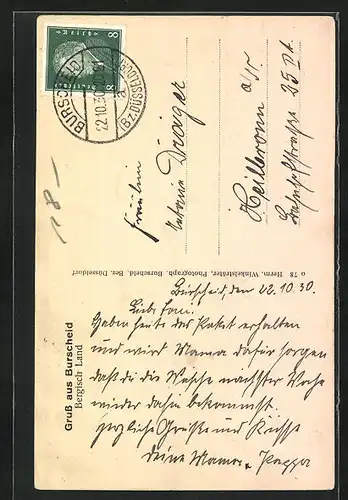 8
Deutsches Reich
8
BURSCHEID
22.10.30
(Bz. DÜSSELDORF)
a
18-
Fräulein
Dräger
Heilbronn a/N
Bahnhofstrasse 25 Pt.
o 78 Herm. Winkelsträter, Photograph, Burscheid, Bez. Düsseldorf
Gruß aus Burscheid
Bergisch Land
Burscheid, den 22.10.30.
Liebe
Haben heute das Paket erhalten
und wird Mama dafür sorgen
daß du die Wäsche nächster Woche
wieder dahin bekommst.
Herzliche Grüße und Küsse
deine Mama u. Pappa